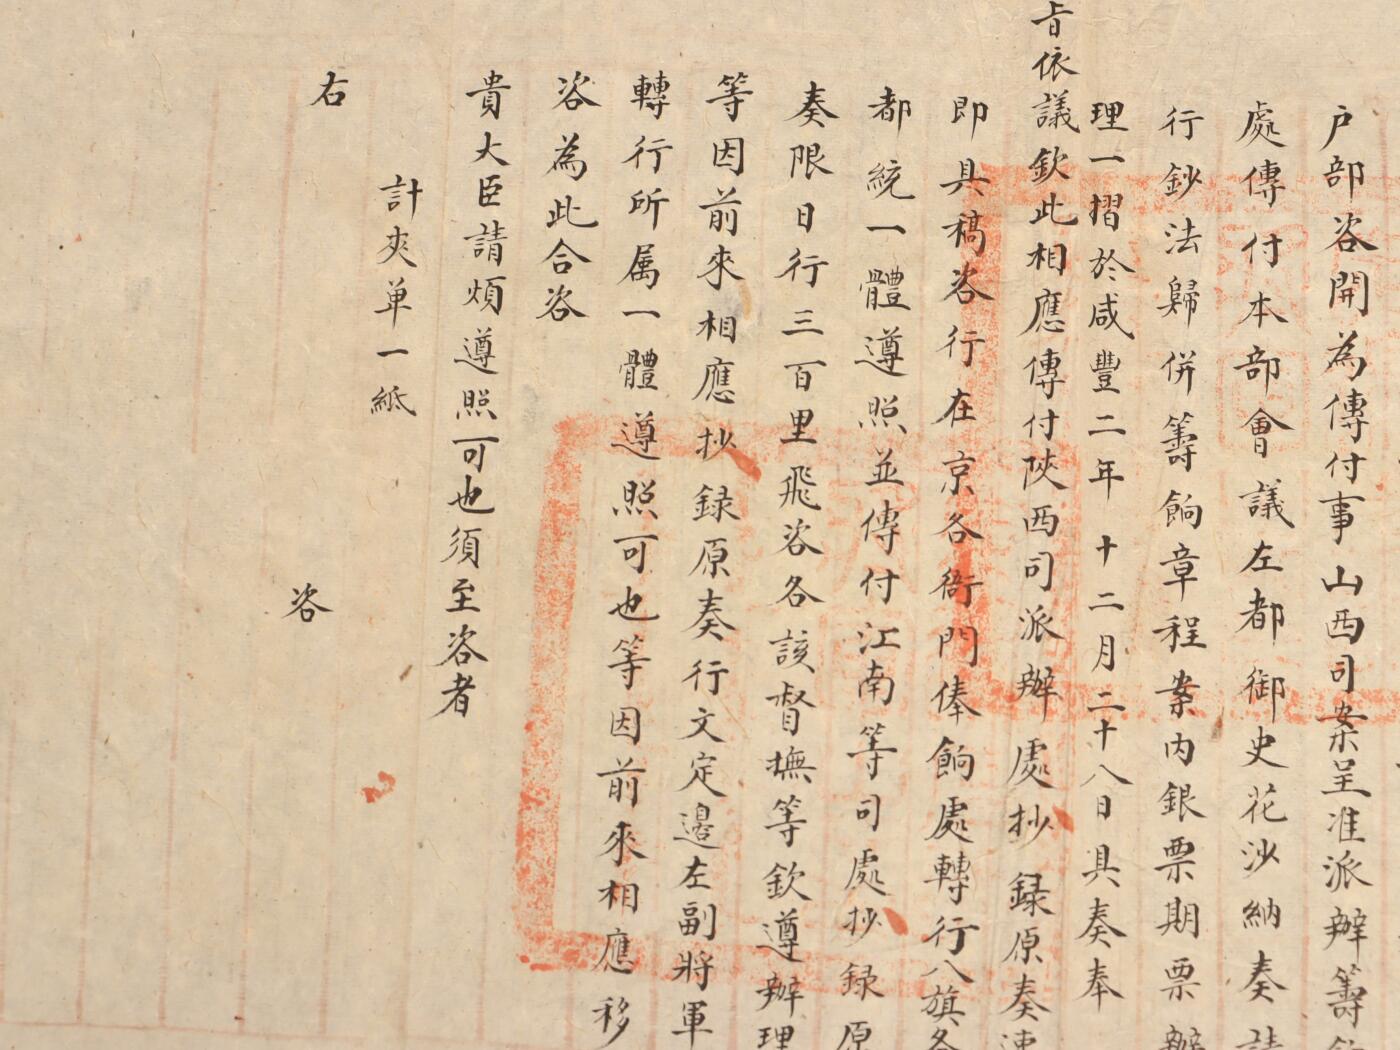 户部咨開為傳付事山西司案呈准派辦籌
處傳付本部會議左都御史花沙納奏請
行鈔法歸併籌餉章程案内銀票期票辦
理一摺於咸豐二年十二月二十八日具奏奉
旨依議欽此相應傳付陝西司派辦處抄録原奏速
即具稿咨行在京各衙門俸餉處轉行八旗各
都統一體遵照並傳付江南等司處抄録原
奏限日行三百里飛咨各該督撫等欽遵辦理
等因前來相應抄録原奏行文定邊左副將軍
轉行所属一體遵照可也等因前來相應移
咨為此合咨
貴大臣請煩遵照可也須至咨者
計夾单一紙
右咨